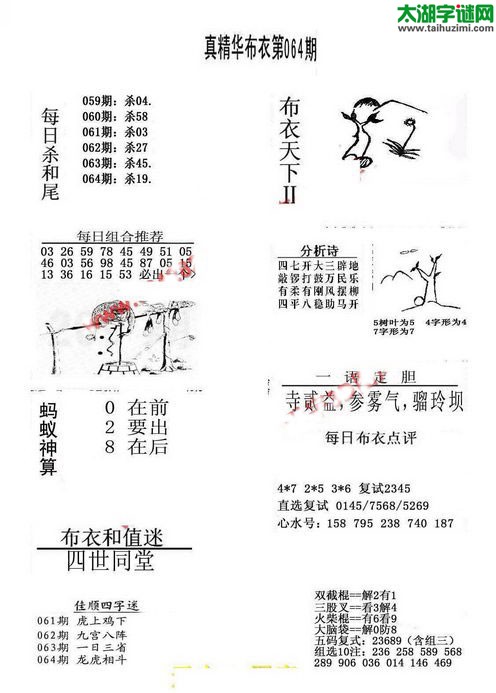 太湖字谜网
www.taihuzimi.com
真精华布衣第064期
每日杀和尾
059期：杀04.
060期：杀58
061期：杀03
062期：杀27
063期：杀45.
064期：杀19.
布衣天下II
每日组合推荐
03 26 59 78 45 49 51 05
46 03 56 98 45 87 05 15
13 36 16 15 53 必出 个>
分析诗
四七开大三辟地
敲锣打鼓万民乐
有柔有刚风摆柳
四平八稳助马开
5树叶为5 4字形为4
7字形为7
一语定胆
寺贰益，参雾气，骝玲坝
每日布衣点评
蚂蚁神算
0 在前
2 要出
8 在后
4*7 2*5 3*6 复试2345
直选复试 0145/7568/5269
心水号: 158 795 238 740 187
布衣和值迷
四世同堂
佳顺四字迷
061期 虎上鸡下
062期 九宫八阵
063期 一日三省
064期 龙虎相斗
双截棍==解2有1
三股叉==看3解4
火柴棍==有6看9
大脑袋==解0防8
五码复式: 23689（含组三）
组选10注: 236 258 589 568
289 906 036 014 146 469